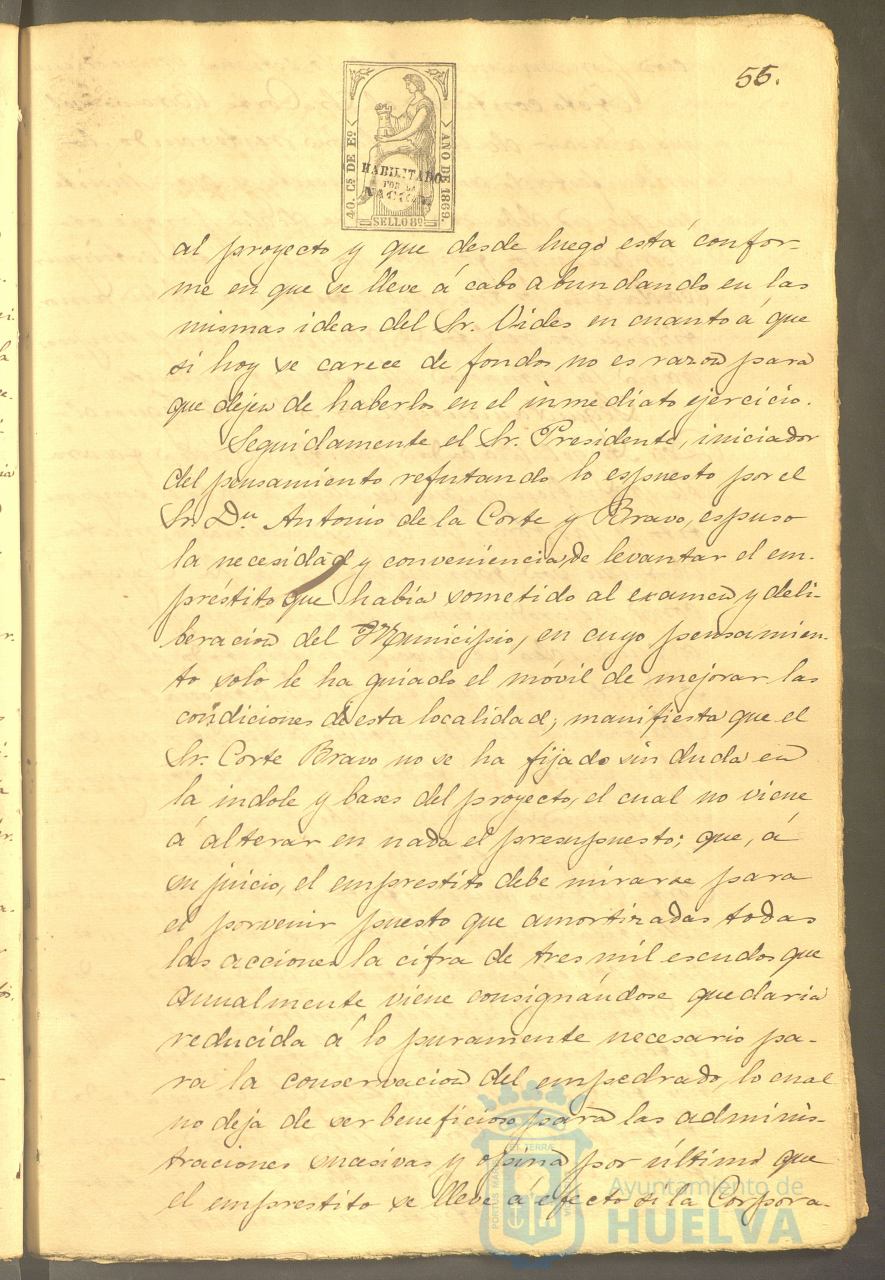 55.
40. Cs. DE Eo.
AÑO DE 1869.
HABILITADO
POR LA
NACION
SELLO 8º
al proyecto y que desde luego está confor-
me en que se lleve á cabo abundando en las
mismas ideas del Sr. Vides en cuanto á que
si hoy se carece de fondos no es razon para
que dejen de haberlos en el inmediato ejercicio.
Seguidamente el Sr. Presidente, iniciador
del pensamiento refutando lo espuesto por el
Sr. Dn. Antonio de la Corte y Bravo, espuso
la necesidad y conveniencia de levantar el em-
préstito que había sometido al examen y deli-
beracion del Municipio, en cuyo pensamien-
to solo le ha guiado el móvil de mejorar las
condiciones de esta localidad; manifiesta que el
Sr. Corte Bravo no se ha fijado sin duda en
la indole y bases del proyecto, el cual no viene
á alterar en nada el presupuesto; que, á
su juicio, el emprestito debe mirarse para
el porvenir puesto que amortizadas todas
las acciones la cifra de tres mil escudos que
anualmente viene consignándose quedaria
reducida á lo puramente necesario pa-
ra la conservacion del empedrado, lo cual
no deja de ser beneficioso para las adminis-
traciones sucesivas y opina por último que
el emprestito se lleve á efecto si la Corpora-
PORTUS MARIS
ET TERRÆ
Ayuntamiento de
HUELVA